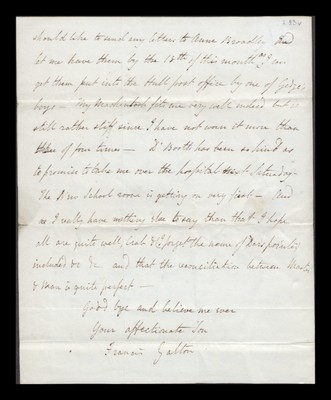 should like to send my letters to Anne Broadley and
let me have them by the 18th of this month as I can
get them put into the Hull post office by one of Gedge's
boys — My Mackintosh fits me very well indeed but is
still rather stiff since I have not worn it more than
three or four times — Dr Booth has been so kind as
to promise to take me over the hospital next Saturday —
The New School room is getting on very fast — And
as I really have nothing else to say than that I hope
all are quite well, (cab &c forget the name of Dears pointer)
included &c &c and that the reconciliation between Master
& Man is quite perfect —
Good bye and believe me ever
Your affectionate Son
Francis Galton